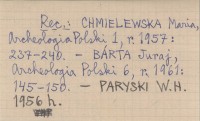 Rec.: CHMIELEWSKA Maria,
Archeologia Polski 1, r. 1957:
237-240. – BÁRTA Juraj,
Archeologia Polski 6, r. 1961:
145-150. – PARYSKI W.H.
1956 h.